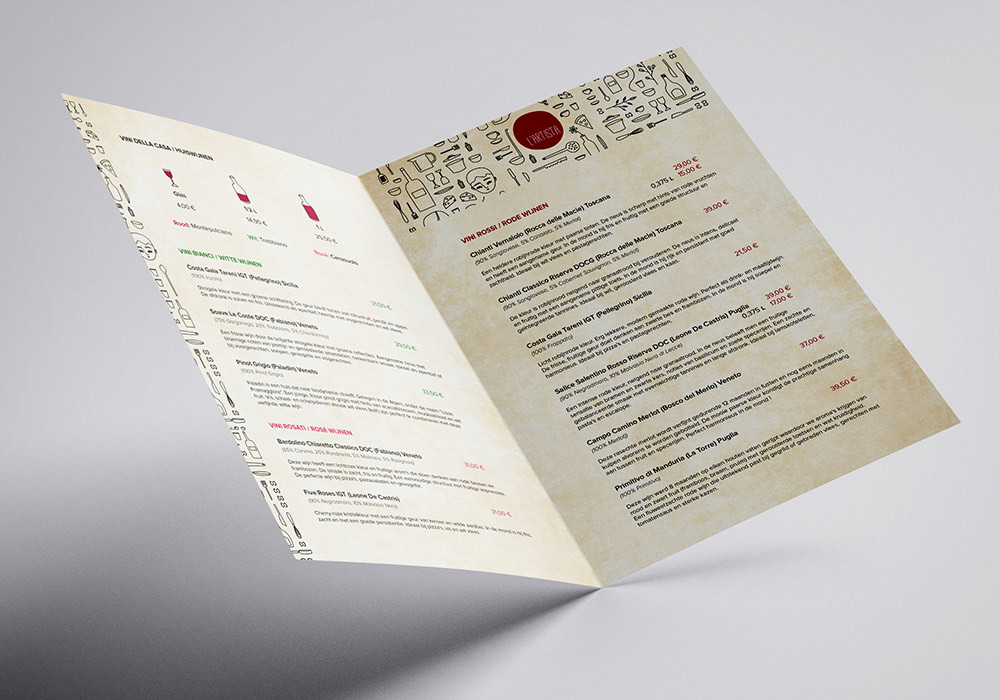 VINI DELLA CASA / HUISWIJNEN
Glas
4,00 €
1/2 L
14,90 €
1 L
25,50 €
Rood: Montepulciano
Wit: Trebbiano
Rosé: Cerasuolo
VINI BIANCI / WITTE WIJNEN
Costa Gaia Tareni IGT (Pellegrino) Sicilia
(100% Inzolia)
21,50 €
Soave Le Coste DOC (Fabiano) Veneto
29,00 €
Pinot Grigio (Paladin) Veneto
(100% Pinot Grigio)
33,50 €
VINI ROSATI / ROSÉ WIJNEN
Bardolino Chiaretto Classico DOC (Fabiano) Veneto
31,00 €
Five Roses IGT (Leone De Castris)
(90% Negroamaro, 10% Malvasia Nera)
31,00 €
Cherry rosé kristalkleur met een fruitige geur van kersen en wilde aardbei. In de mond is hij fris,
zacht en met een goede persistentie. Ideaal bij pizza's, vis en wit vlees.
L'ARTISTA
VINI ROSSI / RODE WIJNEN
29,00 €
Chianti Vernaiolo (Rocca delle Macie) Toscana 0,375 L 15,00 €
(90% Sangiovese, 5% Canaiolo, 5% Merlot)
Een heldere robijnrode kleur met paarse tinten. De neus is scherp met hints van rode vruchten
en heeft een aangename geur. In de mond is hij fris en fruitig met een goede structuur en
zachtheid. Ideaal bij wit vlees en pastagerechten.
39,00 €
Chianti Classico Riserva DOCG (Rocca delle Macie) Toscana
(90% Sangiovese, 5% Cabernet Sauvignon, 5% Merlot)
De kleur is robijnrood neigend naar granaatrood bij veroudering. De neus is intens, delicaat
en fruitig met een aangename pittige toets. In de mond is hij rijk en persistent met goed
geïntegreerde tannines. Ideaal bij wit, geroosterd vlees en kaas.
21,50 €
Costa Gaia Tareni IGT (Pellegrino) Sicilia
(100% Frappato)
Licht robijnrood kleur. Erg lekkere, modern gemaakte rode wijn. Perfect als drink- en maaltijdwijn.
De frisse, fruitige geur doet denken aan zwarte bes en frambozen. In de mond is hij soepel en
harmonieus. Ideaal bij pizza's en pastagerechten.
39,00 €
Salice Salentino Rosso Riserva DOC (Leone De Castris) Puglia 0,375 L 17,00 €
(90% Negroamaro, 10% Malvasia Nera di Lecce)
Een intense rode kleur, neigend naar granaatrood. In de neus beleeft men een fruitige
sensatie van bramen en zwarte kers, noties van basilicum en zoete specerijen. Een zachte en
gebalanceerde smaak met evenwichtige tannines en lange afdronk. Ideaal bij lamskoteletten,
pasta's en escalope.
37,00 €
Campo Camino Merlot (Bosco del Merlo) Veneto
(100% Merlot)
Deze raszechte merlot wordt vertijk gedurende 12 maanden in fusten en nog eens maanden in
kuipen alvorens te worden gebotteld. De mooie paarse kleur kondigt de prachtige samenhang
aan tussen fruit en specerijen. Perfect harmonieus in de mond !
39,50 €
Primitivo di Manduria (La Torre) Puglia
(100% Primitivo)
Deze wijn werd 8 maanden op eiken houten vaten gerijpt waardoor we aroma's krijgen van
rood en zwart fruit (framboos, braam, pruim) met geroosterde toetsen en wat kruidigheid.
Een fluweelzachte rode wijn die uitstekend past bij gegrild of gebraden vlees, gerechten met
tomatensaus en sterke kazen.